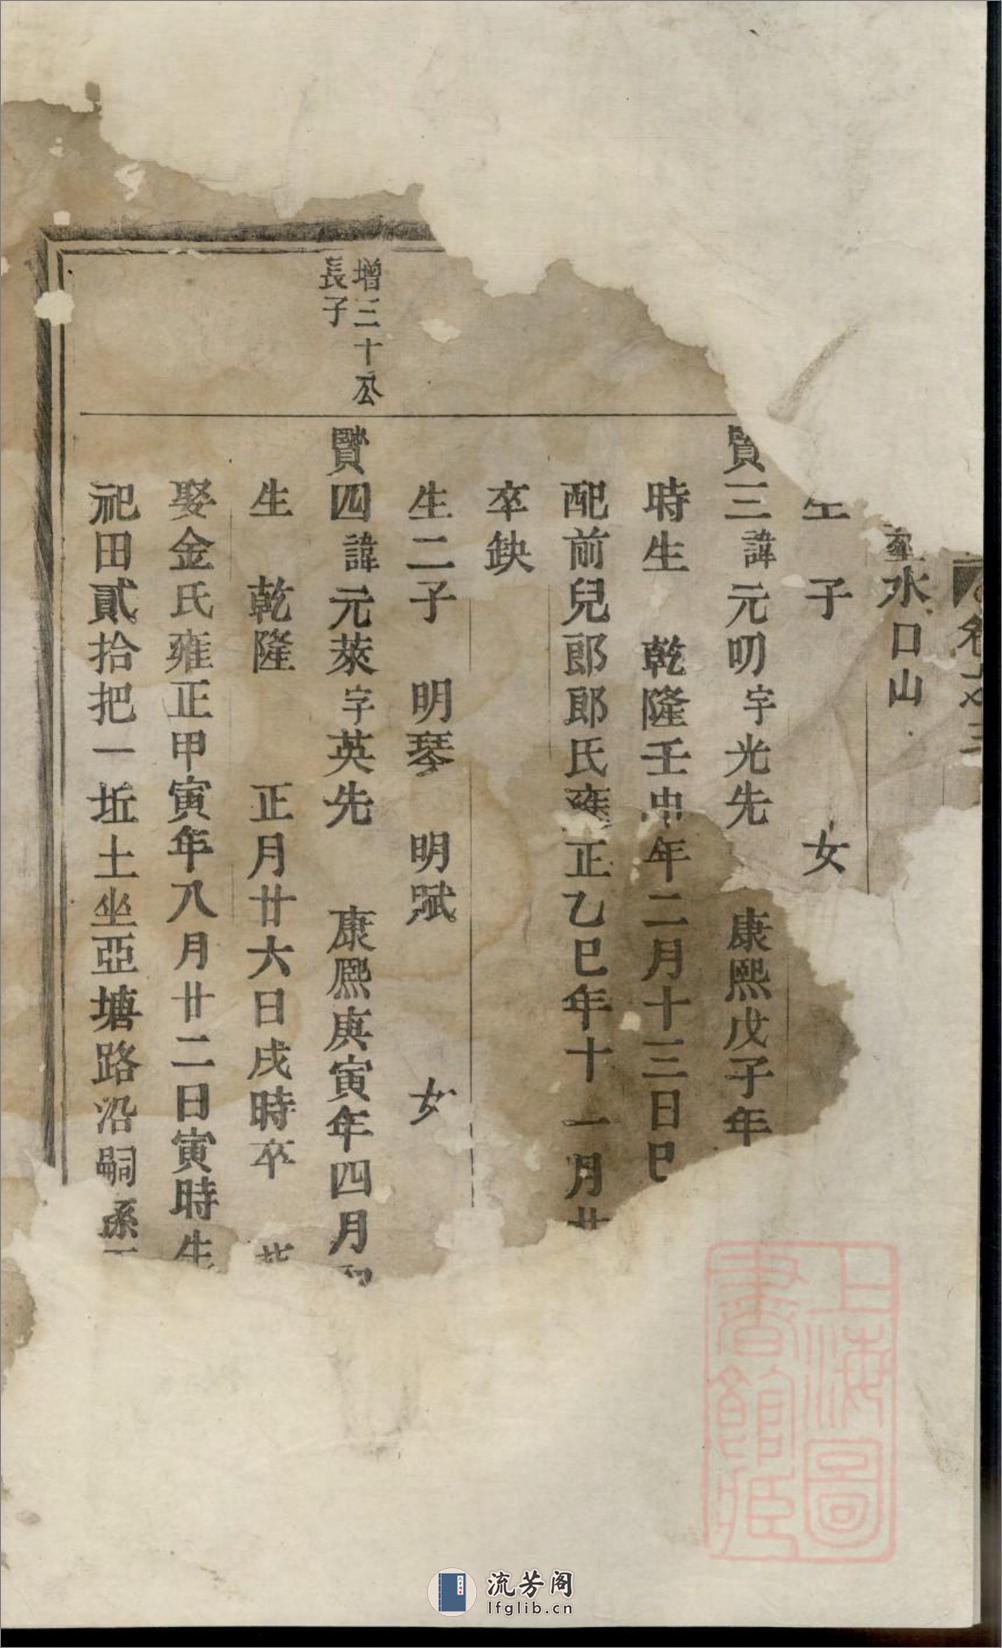 水口山
生　子　　女
賢三諱元叨字光先　康熙戊子年
時生　乾隆壬申年二月十三日巳
配前兒郎郎氏雍正乙巳年十一月廿
卒缺
生二子　明琴　明賦　　女
增三十公
長子
賢四諱元萊字英先　康熙庚寅年四月初
生　乾隆　正月廿六日戌時卒　葬
娶金氏雍正甲寅年八月廿二日寅時生
祀田貳拾把一坵土坐亞塘路沿嗣孫
上海圖
書館藏
流芳阁
lfglib.cn